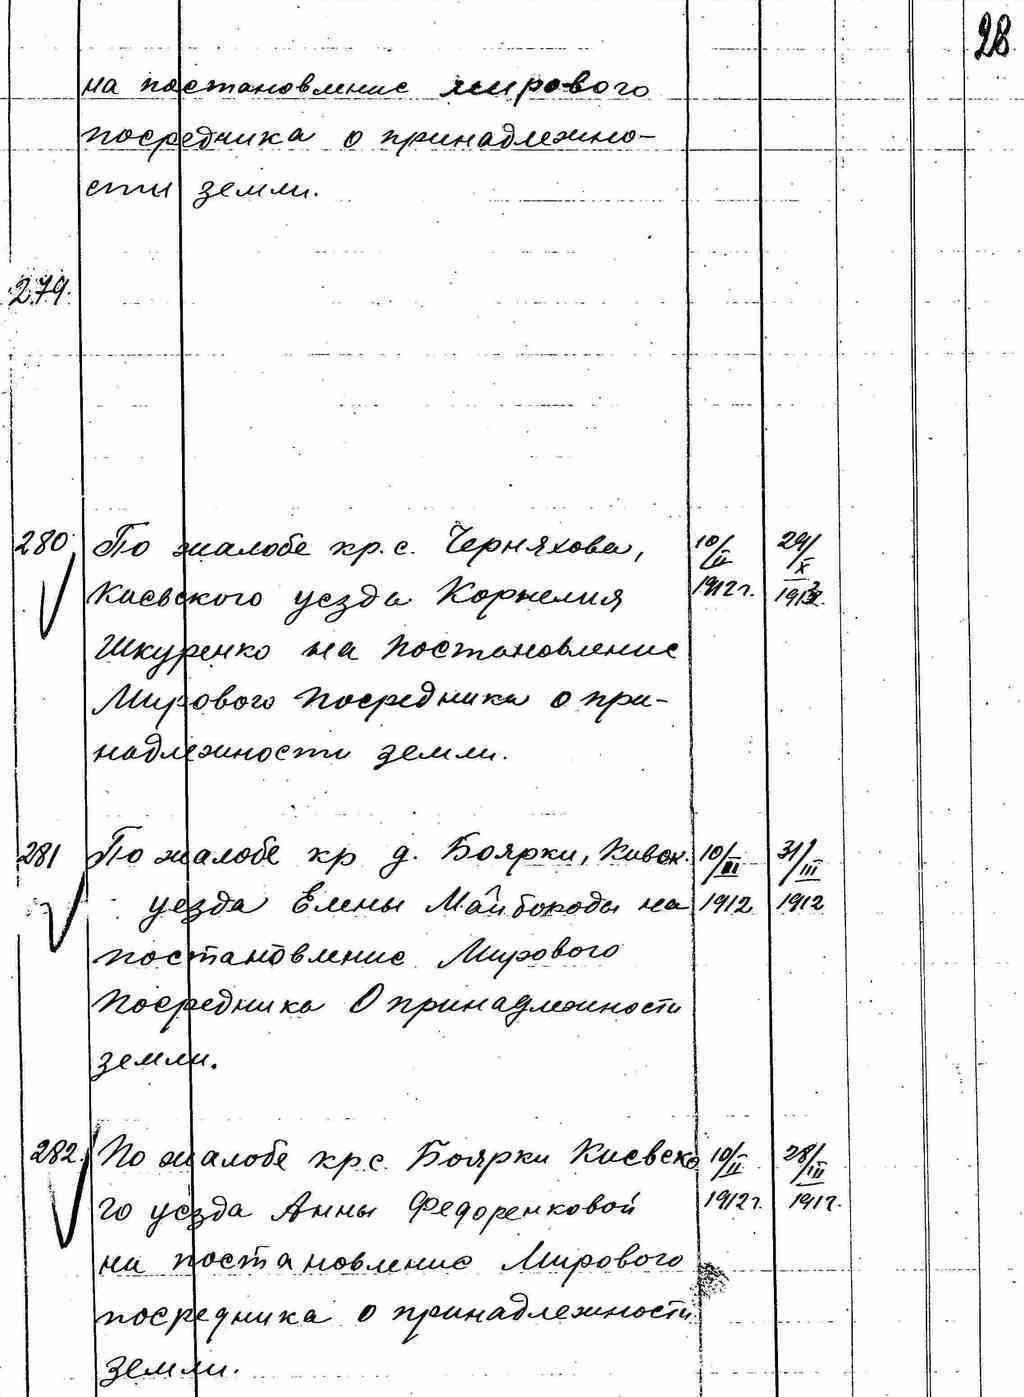 28
на постановление мирового
посредника о принадлежно-
сти земли.
279.
280 По жалобе кр. с. Черняхова, 10/II 29/X
Киевского уезда Корнелия 1912 г.
Шкуренко на постановление
Мирового Посредника о при-
надлежности земли.
281 По жалобе кр д. Боярки, Киевск. 10/III 31/III
уезда Елены Майбороды на 1912 1912
постановление Мирового
Посредника О принадлежности
земли.
282. По жалобе кр с. Боярки Киевско 10/II 28/III
го уезда Анны Федоренковой 1912 г. 191 г.
на постановление Мирового
посредника о принадлежности
земли.